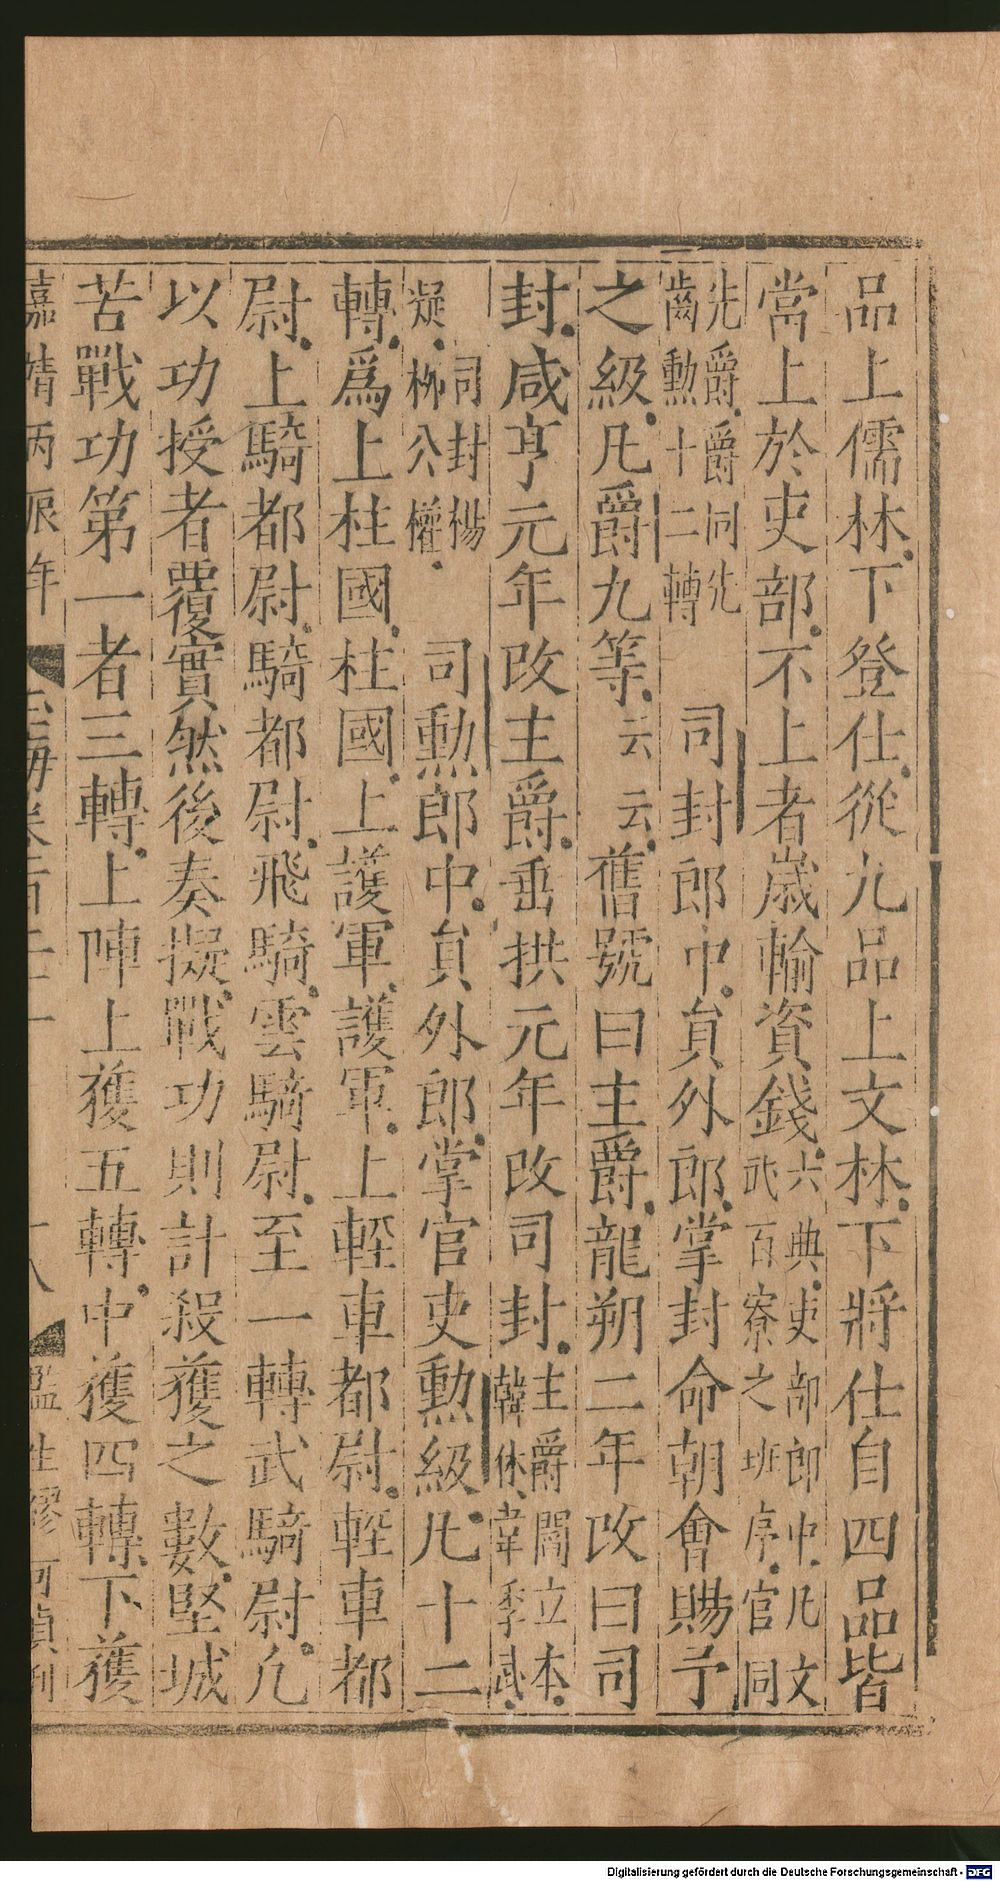 品上儒林下登仕從九品上文林下將仕自四品皆
當上於吏部不上者歲輸資錢六典吏部郎中凡文武百寮之班序官同
先爵爵同先齒勳十二轉 司封郎中貟外郎掌封命朝會賜予
之級凡爵九等云云舊號曰主爵龍朔二年改曰司
封咸亨元年改主爵垂拱元年改司封主爵閻立本韓休韋季武
凝司封楊栁公權 司勳郎中貟外郎掌官吏勲級凡十二
轉爲上柱國柱國上護軍護軍上輕車都尉輕車都
尉上騎都尉騎都尉飛騎雲騎尉至一轉武騎尉凡
以功授者覆實然後奏擬戰功則計殺獲之數堅城
苦戰功第一者三轉上陣上獲五轉中獲四轉下獲
嘉靖丙辰年 玉海卷百二十一 十八 監生繆可貞刊
Digitalisierung gefördert durch die Deutsche Forschungsgemeinschaft - DFG